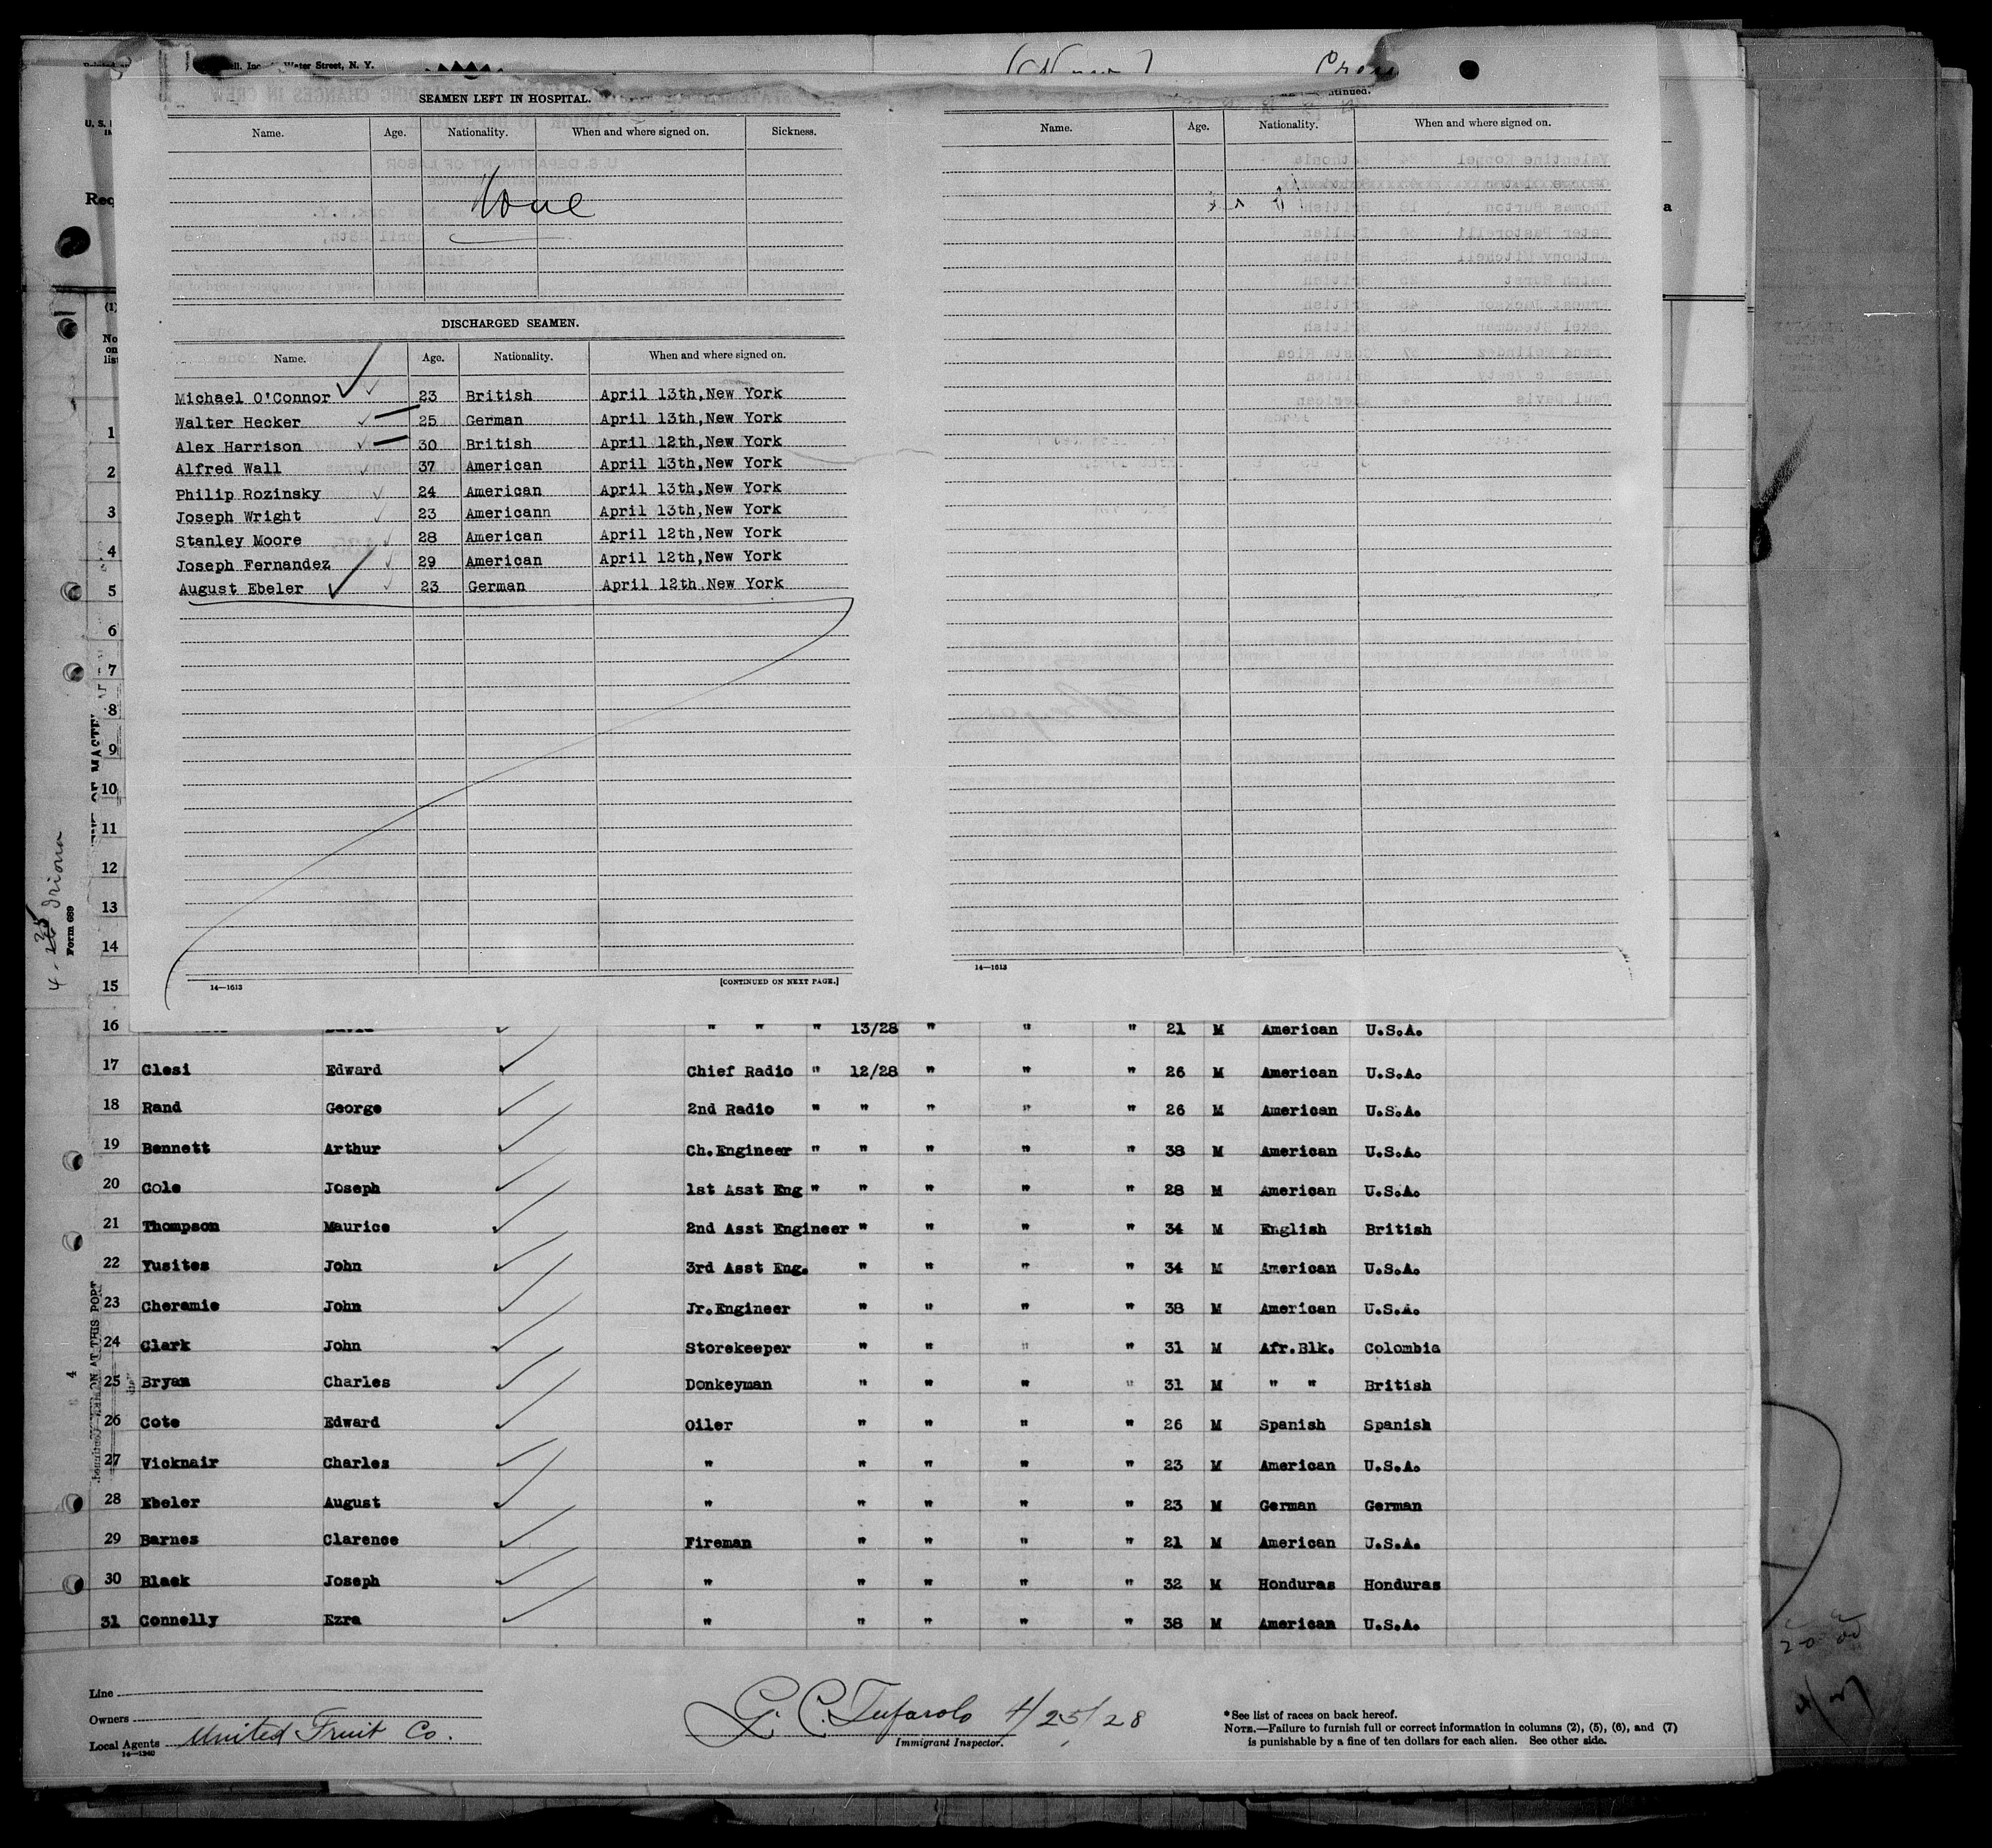 Water Street, N. Y.
SEAMEN LEFT IN HOSPITAL.
Name. Age. Nationality. When and where signed on. Sickness.
None
DISCHARGED SEAMEN.
Name. Age. Nationality. When and where signed on.
Michael O'Connor 23 British April 13th,New York
Walter Hecker 25 German April 13th,New York
Alex Harrison 30 British April 12th,New York
Alfred Wall 37 American April 13th,New York
Philip Rozinsky 24 American April 13th,New York
Joseph Wright 23 Americann April 13th,New York
Stanley Moore 28 American April 12th,New York
Joseph Fernandez 29 American April 12th,New York
August Ebeler 23 German April 12th New York
14—1613 [CONTINUED ON NEXT PAGE.]
Name. Age. Nationality. When and where signed on.
14—1613
Form 689
1
2
3
4
5
6
7
8
9
10
11
12
13
14
15
16 " " " 13/28 " " " 21 M American U.S.A.
17 Clesi Edward Chief Radio " 12/28 " " " 26 M American U.S.A.
18 Rand George 2nd Radio " " " " " 26 M American U.S.A.
19 Bennett Arthur Ch.Engineer " " " " " 38 M American U.S.A.
20 Cole Joseph 1st Asst Eng " " " " " 28 M American U.S.A.
21 Thompson Maurice 2nd Asst Engineer " " " " 34 M English British
22 Yusites John 3rd Asst Eng. " " " " 34 M American U.S.A.
23 Cheramie John Jr.Engineer " " " " 38 M American U.S.A.
24 Clark John Storekeeper " " " " 31 M Afr.Blk. Colombia
25 Bryan Charles Donkeyman " " " " 31 M " " British
26 Cote Edward Oiler " " " " 26 M Spanish Spanish
27 Vicknair Charles " " " " " 23 M American U.S.A.
28 Ebeler August " " " " " 23 M German German
29 Barnes Clarence Fireman " " " " 21 M American U.S.A.
30 Black Joseph " " " " " 32 M Honduras Honduras
31 Connelly Ezra " " " " " 38 M American U.S.A.
Line
Owners
Local Agents United Fruit Co.
14—1240
G. C. Tufarolo 4/25/28
Immigrant Inspector.
*See list of races on back hereof.
NOTE.—Failure to furnish full or correct information in columns (2), (5), (6), and (7)
is punishable by a fine of ten dollars for each alien. See other side.